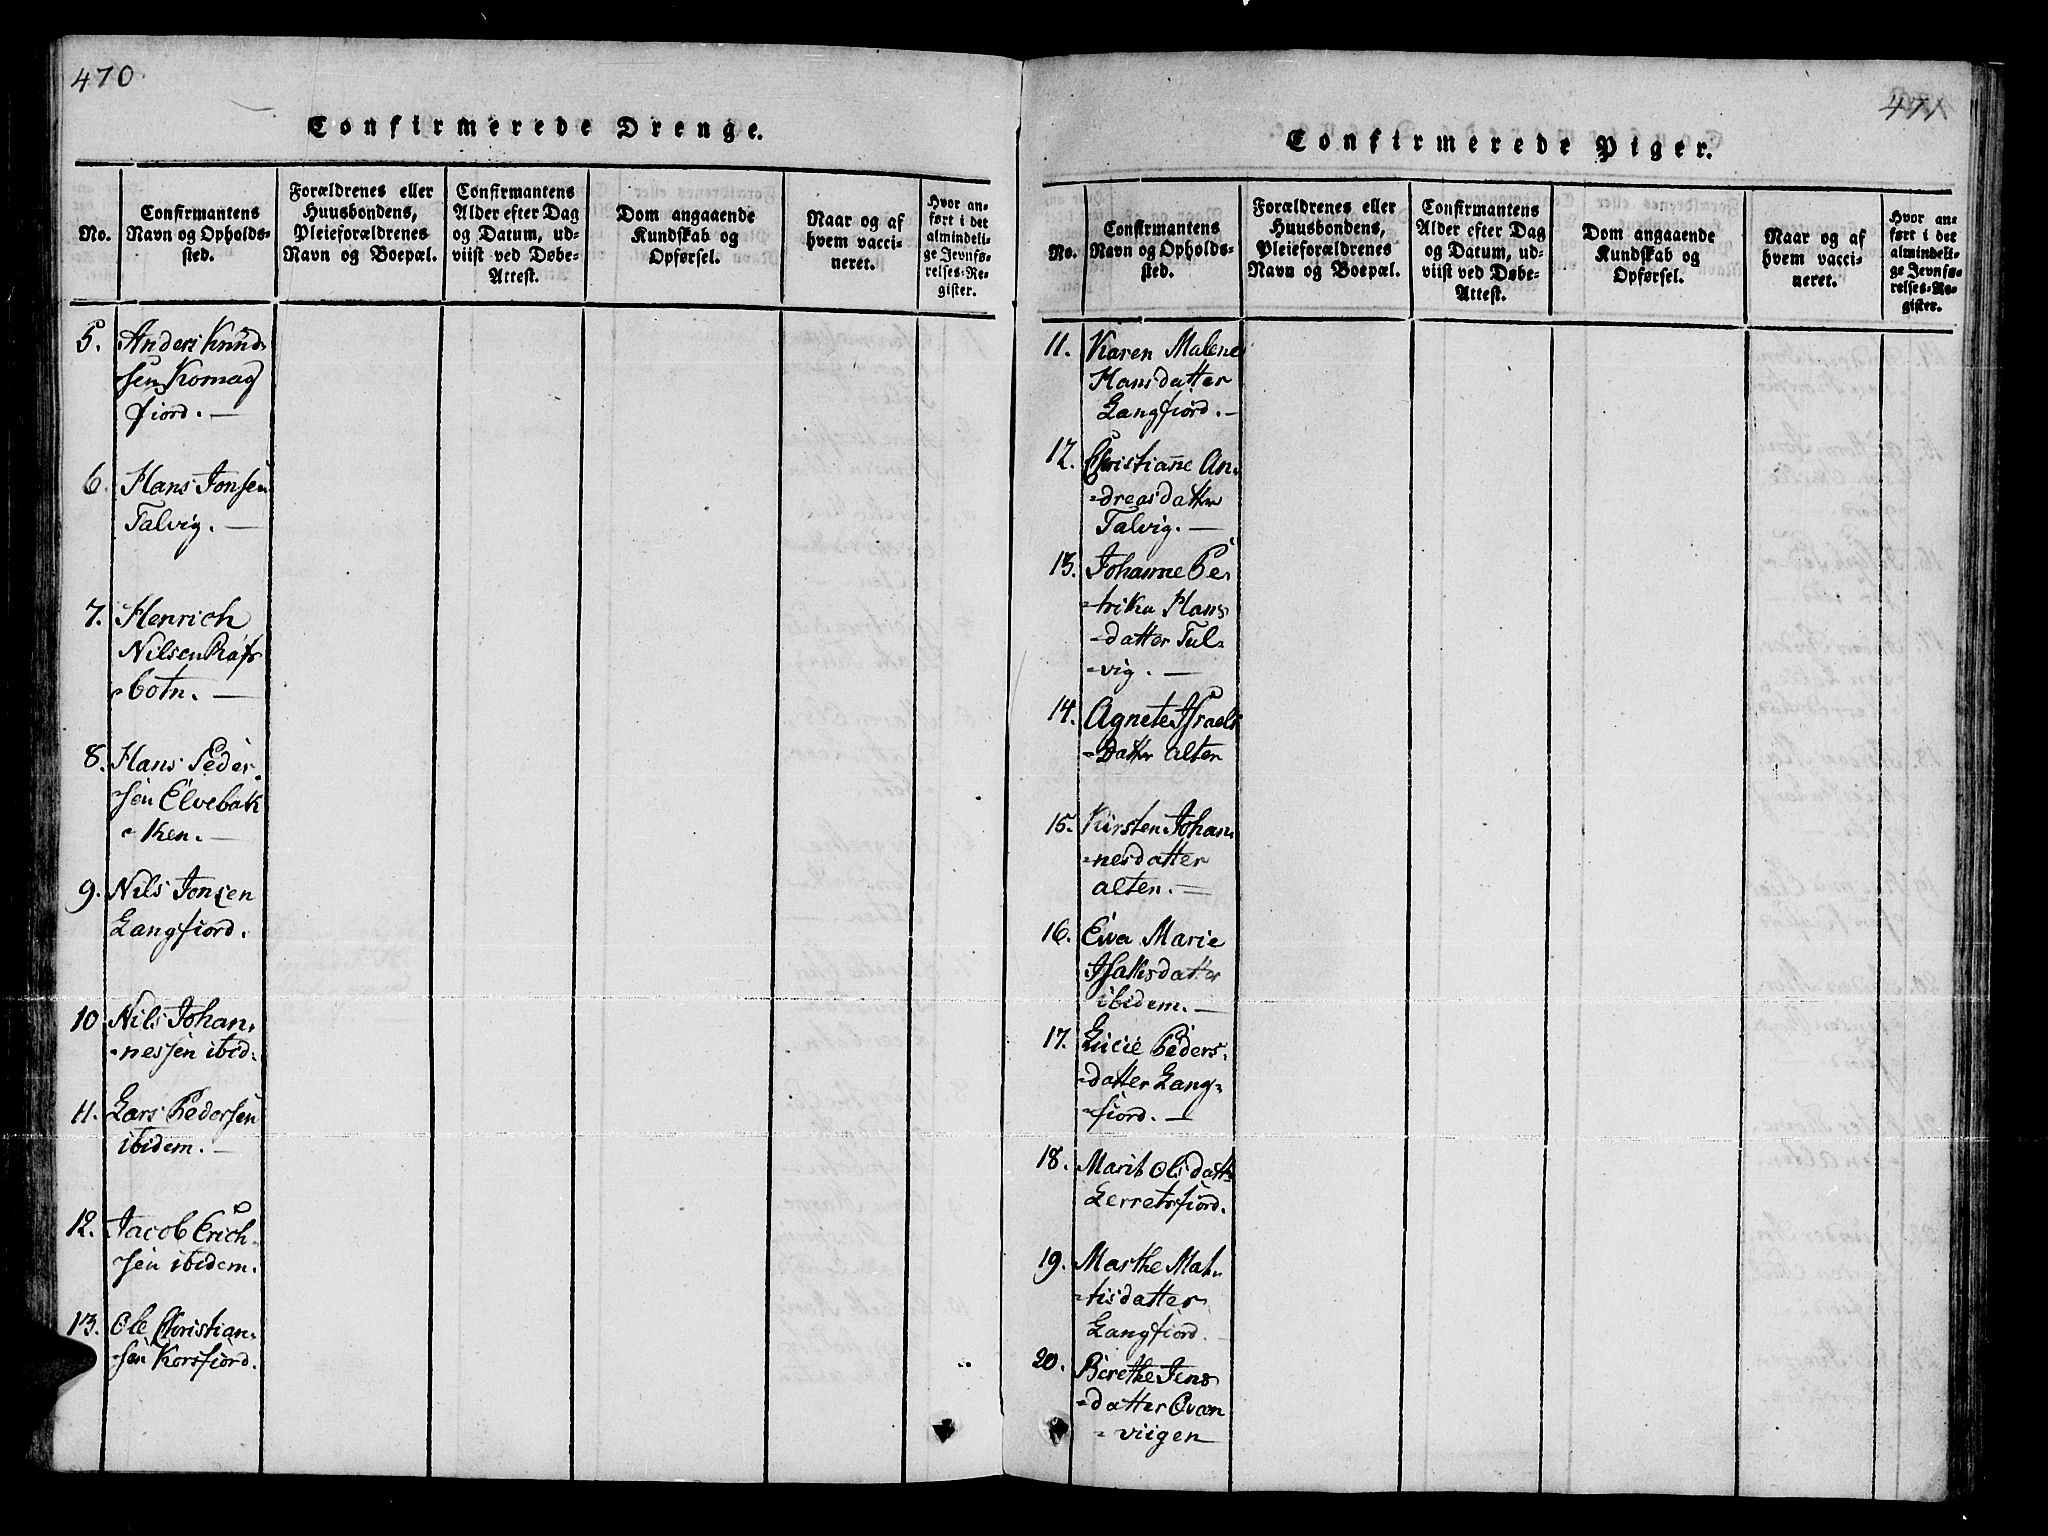 470
Confirmerede Drenge.
No.
Confirmantens
Navn og Opholds-
sted.
Forældrenes eller
Huusbondens,
Pleieforældrenes
Navn og Boepæl.
Confirmantens
Alder efter Dag
og Datum, ud-
viist ved Døbe-
Attest.
Dom angaaende
Kundskab og
Opførsel.
Naar og af
hvem vacci-
neret.
Hvor an-
ført i det
almindeli-
ge Jevnfø-
relses-Re-
gister.
5. Anders Knud-
sen Komag
fiord. —
6. Hans Jonsen
Talvig. —
7. Henrich
Nilsen Rafs
-botn. —
8. Hans Peder-
sen Elvebak
-ken. —
9. Nils Jonsen
Langfiord.
10. Nils Johan-
-nessen ibid-
11. Lars Pedersen
ibidem. —
12. Jacob Erich-
sen ibidem.
13. Ole Christian-
sen Korsfiord.
471
Confirmerede Piger.
No.
Confirmantens
Navn og Opholds-
sted.
Forældrenes eller
Huusbondens,
Pleieforældrenes
Navn og Boepæl.
Confirmantens
Alder efter Dag
og Datum, ud-
viist ved Døbe-
Attest.
Dom angaaende
Kundskab og
Opførsel.
Naar og af
hvem vacci-
neret.
Hvor an-
ført i det
almindeli-
ge Jevnfø-
relses-Re-
gister.
11. Karen Malene
Hansdatter
Langfiord. —
12. Christiane An-
-dreasdatter
Talvig. —
13. Johanne Pe-
-trika Hans
-datter Tal-
-vig. —
14. Agnete Israels
-Datter Alten
15. Kirsten Johan-
-nesdatter
Alten. —
16. Ewa Marie
Isaksdatter
ibidem. —
17. Lucie Peders-
-datter Lang-
-fiord. —
18. Marit Olsdatt-
Lerretsfiord.
19. Marthe Mat-
-tisdatter
Langfiord. —
20. Berethe Jens
-datter Qvæn
-viigen